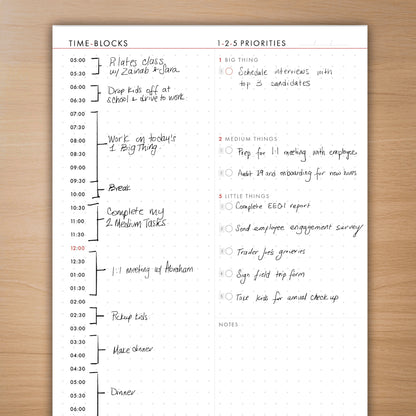 TIME-BLOCKS
05:00
05:30
Pilates class
w/ Zainab & Sara
06:00
06:30
Drop kids off at
school & drive to work
07:00
07:30
08:00
08:30
09:00
09:30
Work on today's
1 Big Thing
10:00
Break
10:30
11:00
11:30
Complete my
2 Medium Tasks
12:00
12:30
01:00
01:30
1:1 meeting w/ Abraham
02:00
02:30
Pickup kids
03:00
03:30
04:00
Make dinner
04:30
05:00
05:30
06:00
Dinner
1-2-5 PRIORITIES
1 BIG THING
Schedule interviews with
top 3 candidates
2 MEDIUM THINGS
Prep for 1:1 meeting with employee
Audit and onboarding for new hires
5 LITTLE THINGS
Complete EEO1 report
Send employee engagement survey
Trader Joe's groceries
Sign field trip form
Take kids for annual check up
NOTES